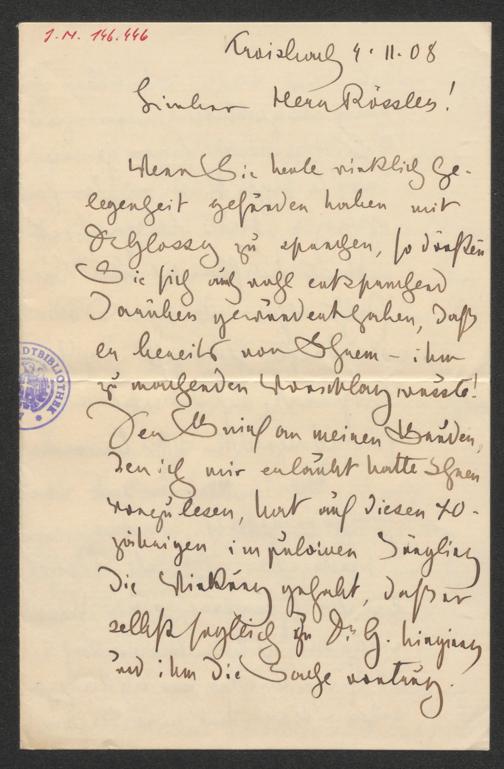 J. N. 146.446
4. 11. 08
Lieber Herr Rössler!
Wenn Sie heute wirklich Ge-
legenheit gefunden haben mit
Dr Glossy zu sprechen, so dürften
Sie sich auch wohl entsprechend
darüber gewundert haben, daß
er bereits von Ihrem – ihm
zu machenden Vorschlag wusste!
Der Brief an meinen Bruder,
den ich mir erlaubt hatte Ihnen
vorzulesen, hat auf diesen 40-
jährigen impulsiven Jüngling
die Wirkung gehabt, daß er
selbst sogleich zu Dr. G. hinging
und ihm die Sache vortrug.
STADTBIBLIOTHEK